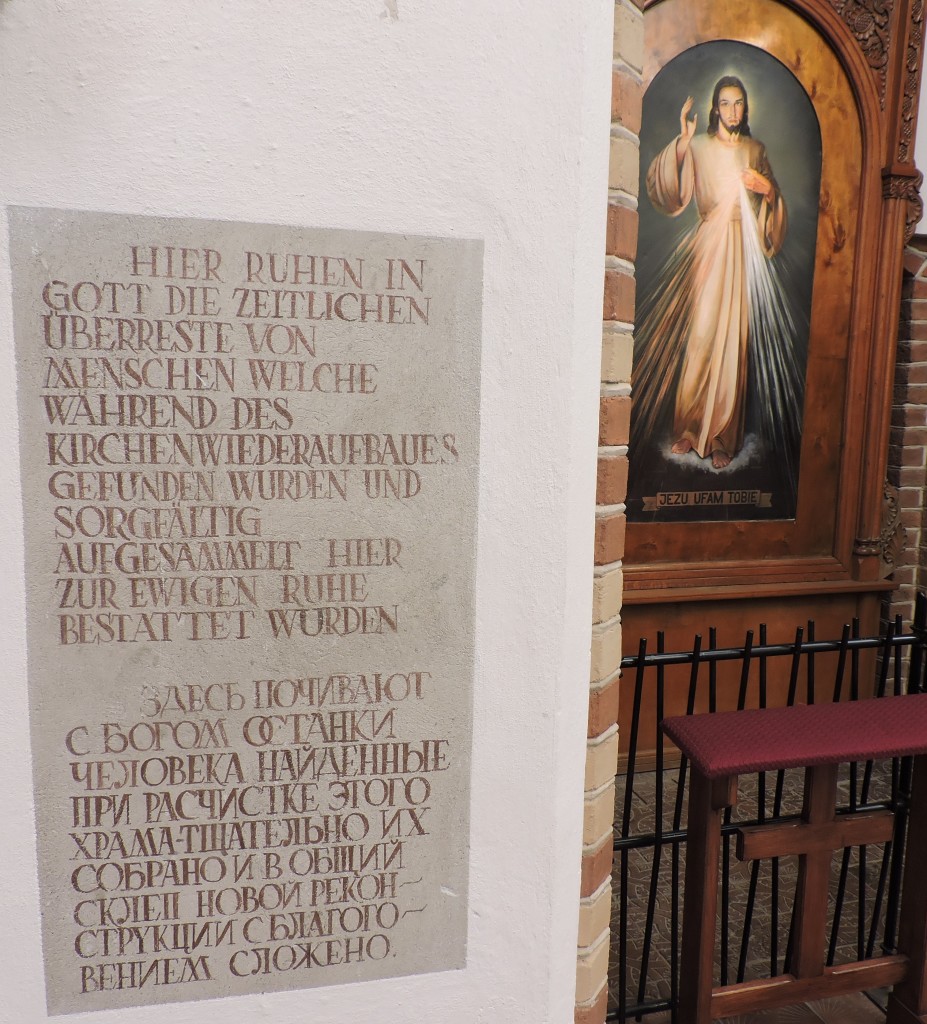 HIER RUHEN IN
GOTT DIE ZEITLICHEN
ÜBERRESTE VON
MENSCHEN WELCHE
WÄHREND DES
KIRCHENWIEDERAUFBAUES
GEFUNDEN WURDEN UND
SORGFÄLTIG
AUFGESAMMELT HIER
ZUR EWIGEN RUHE
BESTATTET WURDEN
ЗДЕСЬ ПОЧИВАЮТ
С БОГОМ ОСТАНКИ
ЧЕЛОВЕКА НАЙДЕННЫЕ
ПРИ РАСЧИСТКЕ ЭТОГО
ХРАМА-ТЩАТЕЛЬНО ИХ
СОБРАНО И В ОБЩИЙ
СКЛЕП НОВОЙ РЕКОН~
СТРУКЦИИ С БЛАГОГО~
ВЕНИЕМ СЛОЖЕНО.
JEZU UFAM TOBIE